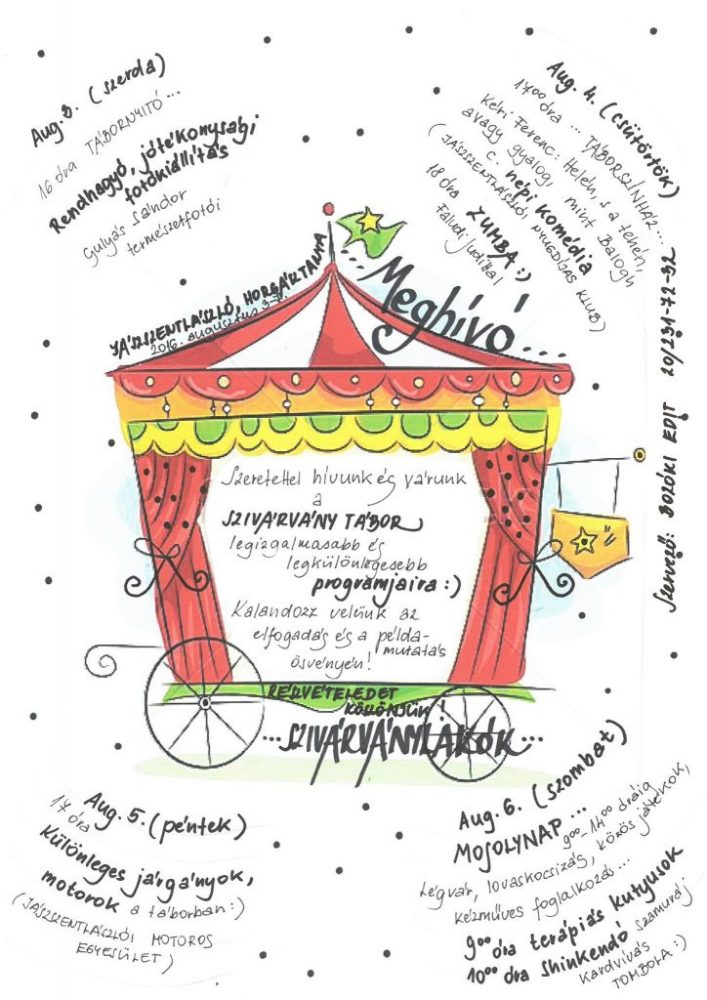 Aug. 3. (szerda)
16 óra TÁBORNYITÓ...
Rendhagyó, jótékonysági
fotókiállítás
Gulyás Sándor
természetfotói
Aug. 4. (csütörtök)
17⁰⁰ óra ... TÁBORSZÍNHÁZ...
Kéri Ferenc: Helén, s a tehén,
avagy gyalogi, mint Balogh
c. népi komédia
(JÁSZSZENTLÁSZLÓI NYUGDÍJAS KLUB)
18 óra ZUMBA :)
Faludi Judittal
JÁSZSZENTLÁSZLÓ, HORGÁRTANYA
2016. augusztus 3-7.
Meghívó...
Szervező: BOZÓKI EDIT 20/231-72-52
Szeretettel hívunk és várunk
a
SZIVÁRVÁNY TÁBOR
legizgalmasabb és
legkülönlegesebb
programjaira :)
Kalandozz velünk az
elfogadás és a példa-
mutatás
ösvényén!
RÉSZVÉTELEDET
KÖSZÖNJÜK!
...SZIVÁRVÁNYLAKÓK...
Aug. 5. (péntek)
17 óra
Különleges járgányok,
motorok a táborban :)
(JÁSZSZENTLÁSZLÓI MOTOROS
EGYESÜLET)
Aug. 6. (szombat)
MOSOLYNAP ... 9⁰⁰-14⁰⁰ óráig
Légvár, lovaskocsizás, közös játékok,
kézműves foglalkozás...
9⁰⁰ óra terápiás kutyusok
10⁰⁰ óra shinkendó szamuráj
kardvívás
TOMBOLA :)